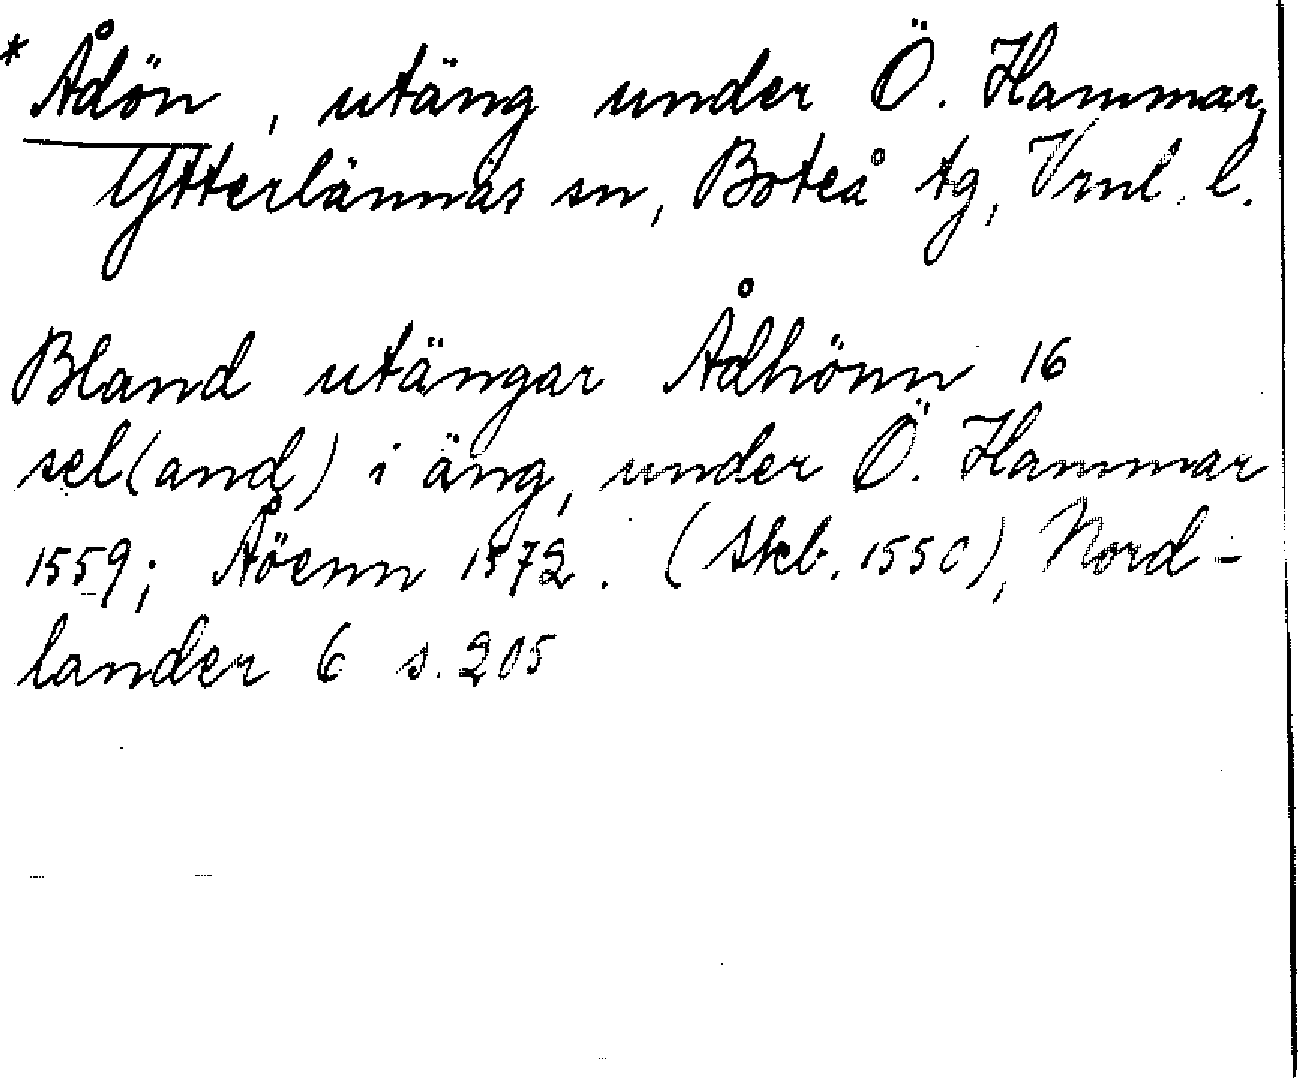 * Ådön, utäng under Ö. Hammar,
Ytterlännäs sn, Boteå tg, Vrnl. l.
Bland utängar Ådhönn 16
sel(and) i äng, under Ö. Hammar
1559; Åöenn 1572. (Skb. 1550), Nord-
lander 6 s. 205